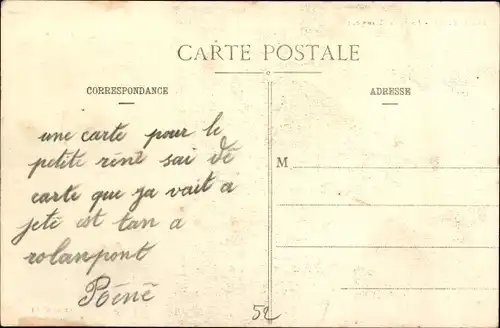 CARTE POSTALE
CORRESPONDANCE
ADRESSE
M
une carte pour le
petite réné sai de
carte que ja vait a
jeté est tan a
rolanpont
Réné
52